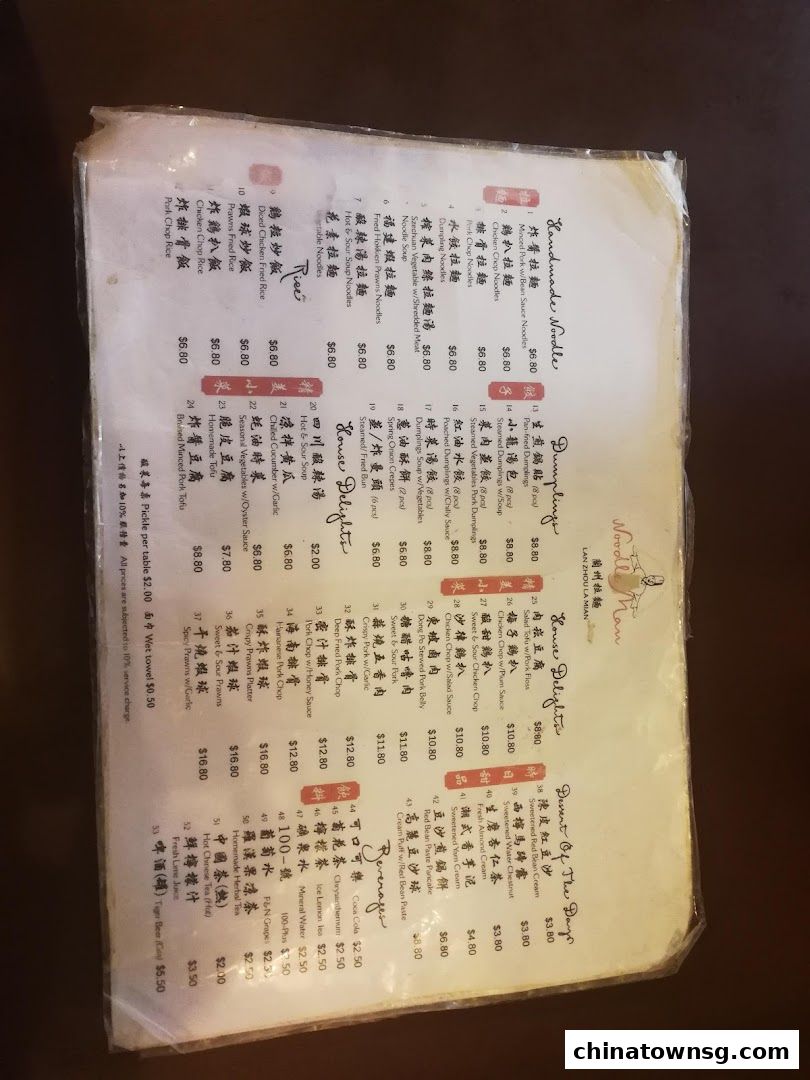 Noodle Man
蘭州拉麵
LAN ZHOU LA MIAN
Handmade Noodle
拉麵
1 炸醬拉麵 $6.80
Minced Pork w/Bean Sauce Noodles
2 鷄扒拉麵 $6.80
Chicken Chop Noodles
3 排骨拉麵 $6.80
Pork Chop Noodles
4 水餃拉麵 $6.80
Dumpling Noodles
5 榨菜肉絲拉麵湯 $6.80
Szechuan Vegetable w/Shredded Meat
Noodle Soup
6 福建蝦拉麵 $6.80
Fried Hokkien Prawns Noodles
7 酸辣湯拉麵 $6.80
Hot & Sour Soup Noodles
花素拉麵 $6.80
Vegetable Noodles
Rice
飯
9 鷄粒炒飯 $6.80
Diced Chicken Fried Rice
10 蝦球炒飯 $6.80
Prawns Fried Rice
11 炸鷄扒飯 $6.80
Chicken Chop Rice
12 炸排骨飯 $6.80
Pork Chop Rice
Dumplings
餃子
13 生煎鍋貼 (8 pcs) $8.80
Pan-fried Dumplings
14 小籠湯包 (8 pcs) $8.80
Steamed Dumplings w/Soup
15 菜肉蒸餃 (8 pcs) $8.80
Steamed Vegetables Pork Dumplings
16 紅油水餃 (8 pcs) $8.80
Poached Dumplings w/Chilly Sauce
17 時菜湯餃 (8 pcs) $8.80
Dumplings Soup w/Vegetables
18 蔥油酥餅 (2 pcs) $6.80
Spring Onion Crepes
19 蒸/炸曼頭 (6 pcs) $6.80
Steamed/ Fried Bun
House Delights
精美小菜
20 四川酸辣湯 $2.00
Hot & Sour Soup
21 凉拌黄瓜 $6.80
Chilled Cucumber w/Garlic
22 蚝油時菜 $6.80
Seasonal Vegetables w/Oyster Sauce
23 脆皮豆腐 $7.80
Homemade Tofu
24 炸醬豆腐 $8.80
Braised Minced Pork Tofu
House Delights
精美小菜
25 肉崧豆腐 $8.80
Salad Tofu w/Pork Floss
26 梅子鷄扒 $10.80
Chicken Chop w/Plum Sauce
27 酸甜鷄扒 $10.80
Sweet & Sour Chicken Chop
28 沙律鷄扒 $10.80
Chicken Chop w/Salad Sauce
29 東坡鹵肉 $10.80
Dong Po Stewed Pork Belly
30 糖醋咕嚕肉 $11.80
Sweet & Sour Pork
31 蒜燒五香肉 $11.80
Crispy Pork w/Garlic
32 酥炸排骨 $12.80
Deep Fried Pork Chop
33 蜜汁排骨 $12.80
Pork Chop w/Honey Sauce
34 海南排骨 $12.80
Hainanese Pork Chop
35 酥炸蝦球 $16.80
Crispy Prawns Platter
36 茄汁蝦球 $16.80
Sweet & Sour Prawns
37 干燒蝦球 $16.80
Spicy Prawns w/Garlic
Dessert Of The Day
時日甜品
38 陳皮紅豆沙 $3.80
Sweetened Red Bean Cream
39 西檸馬蹄露 $3.80
Sweetened Water Chestnut
40 生磨杏仁茶 $3.80
Fresh Almond Cream
41 潮式香芋泥 $4.80
Sweetened Yam Cream
42 豆沙煎鍋餅 $6.80
Red Bean Paste Pancake
43 高麗豆沙球 $8.80
Cream Puff w/Red Bean Paste
Beverages
飲料
44 可口可樂 Coca Cola $2.50
45 菊花茶 Chrysanthemum $2.50
46 檸檬茶 Ice Lemon Tea $2.50
47 礦泉水 Mineral Water $2.50
48 100-號 100-Plus $2.50
49 葡萄水 F&N Grapes $2.50
50 羅漢果凉茶 $2.50
Homemade Herbal Tea
51 中國茶(熱) $2.00
Hot Chinese Tea (Hot)
52 鮮檸檬汁 $3.50
Fresh Lime Juice
53 啤酒(罐) Tiger Beer (Can) $5.50
酸菜每桌 Pickle per table $2.00 面巾 Wet towel $0.50
以上價格另加10%服務費 All prices are subjected to 10% service charge.
chinatownsg.com